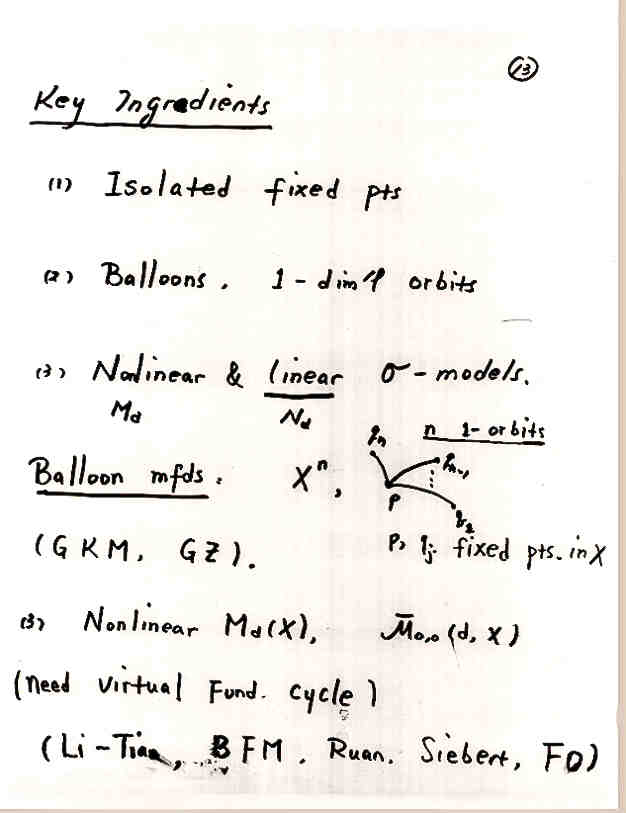 13
Key Ingredients
(1) Isolated fixed pts
(2) Balloons. 1-dim'l orbits
(3) Nonlinear & linear σ-models.
M_d N_d
q_n n 1-orbits
q_{n-1}
Balloon mfds: X^n,
p
q_2
(GKM, GZ). p, q_j fixed pts. in X
(3) Nonlinear M_d(X), M̄_{0,0}(d, X)
(need virtual Fund. cycle)
(Li-Tian, BFM. Ruan. Siebert, FO)